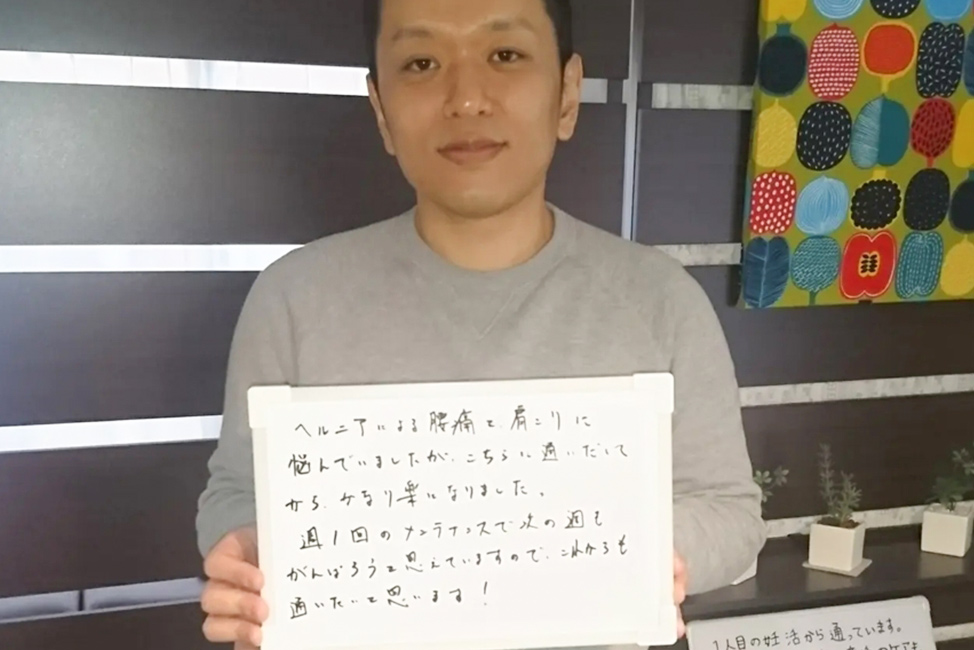 ヘルニアによる腰痛と、肩こりに
悩んでいましたが、こちらに通いだして
から、かなり楽になりました。
週1回のメンテナンスで次の週も
がんばろうと思えていますので、これからも
通いたいと思います!
1人目の妊活から通っています。